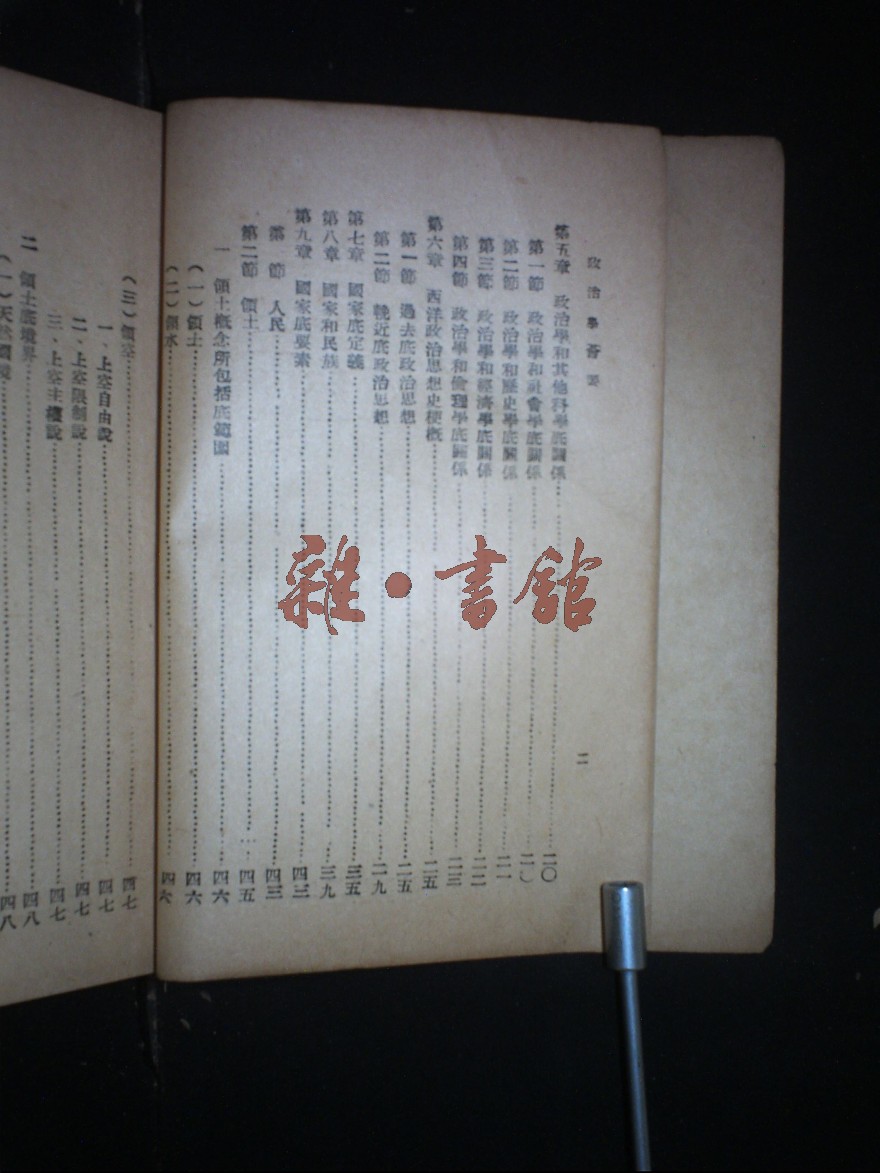 政治學薈要
二
第五章 政治學和其他科學底關係 二〇
第一節 政治學和社會學底關係 二〇
第二節 政治學和歷史學底關係 二一
第三節 政治學和經濟學底關係 二二
第四節 政治學和倫理學底關係 二三
第六章 西洋政治思想史梗概 二五
第一節 過去底政治思想 二五
第二節 輓近底政治思想 二九
第七章 國家底定義 三五
第八章 國家和民族 三九
第九章 國家底要素 四二
第 節 人民 四三
第二節 領土 四五
一 領土概念所包括底範圍 四六
(一)領土 四六
(二)領水 四六
(三)領空 四七
一、上空自由說 四七
二、上空限制說 四七
三、上空主權說 四七
二 領土底境界 四八
(一)天然 四八
雜·書館